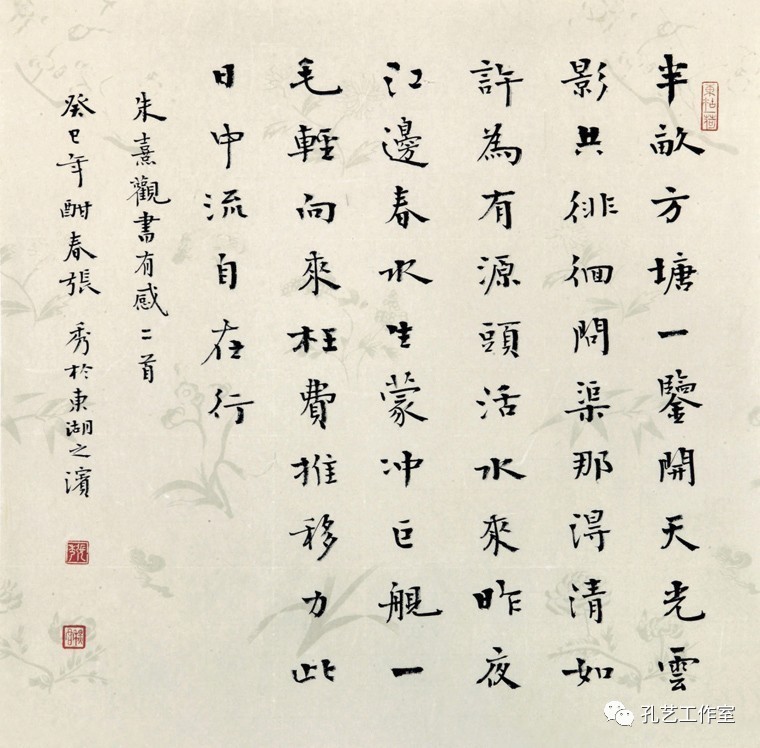 半畝方塘一鑒開天光雲
影共徘徊問渠那得清如
許為有源頭活水來昨夜
江邊春水生蒙冲巨艦一
毛輕向來枉費推移力此
日中流自在行
朱熹觀書有感二首
癸巳年酣春張秀於東湖之濱
孔艺工作室